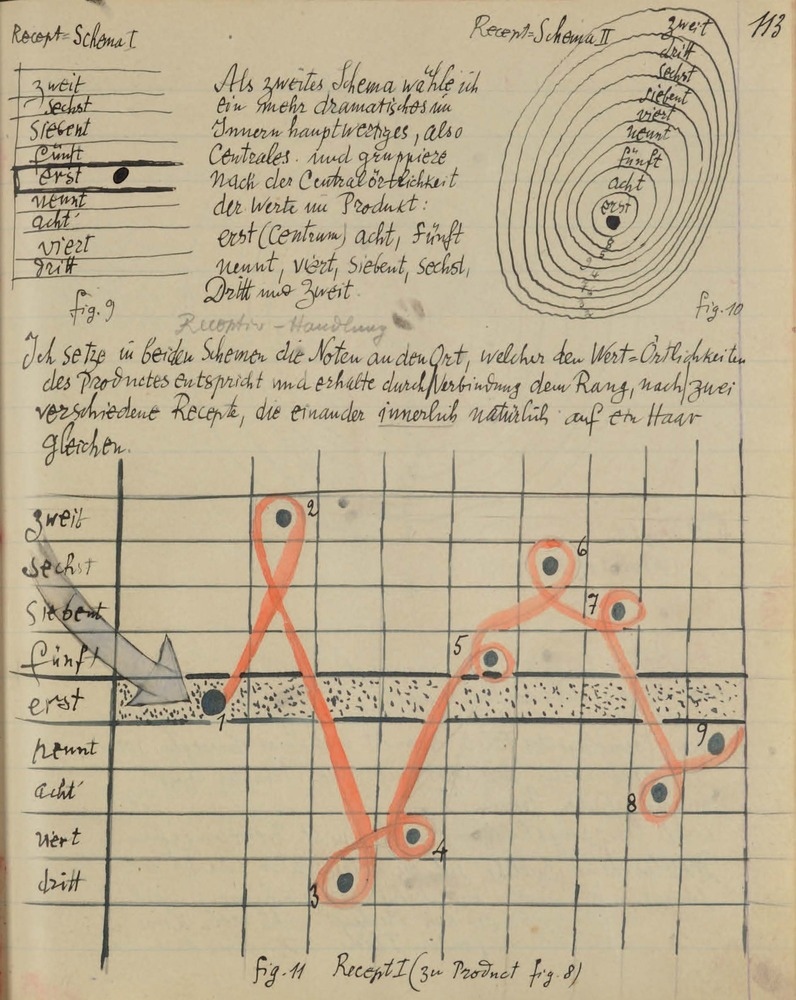 Recept=Schema I
Recept=Schema II
113
zweit
sechst
Siebent
fünft
erst
nennt
acht
viert
dritt
fig. 9
Als zweites Schema wähle ich
ein mehr dramatisches im
Innern hauptwertiges, also
Centrales. und gruppiere
nach der Centralörtlichkeit
der Werte im Produkt:
erst (Centrum) acht, fünft
nennt, viert, siebent, sechst,
Dritt und zweit.
zweit
dritt
sechst
siebent
viert
nennt
fünft
acht
erst
8
5
9
4
7
6
3
2
fig. 10
Receptiv-Handlung
Ich setze in beiden Schemen die Noten an den Ort, welcher den Wert=Örtlichkeiten
des Productes entspricht und erhalte durch Verbindung dem Rang, nach, zwei
verschiedene Recepte, die einander innerlich natürlich auf ein Haar
gleichen.
zweit
sechst
Siebent
fünft
erst
nennt
acht
viert
dritt
1
2
3
4
5
6
7
8
9
fig. 11 Recept I (zu Product fig. 8)